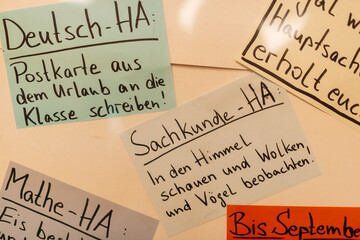 Deutsch-HA:
Postkarte aus
dem Urlaub an die
Klasse schreiben!
mal w
Hauptsach
erholt euc
Sachkunde-HA:
In den Himmel
schauen und Wolken,
und Vögel beobachten.
Mathe-HA:
Eis best
Bis Septembe